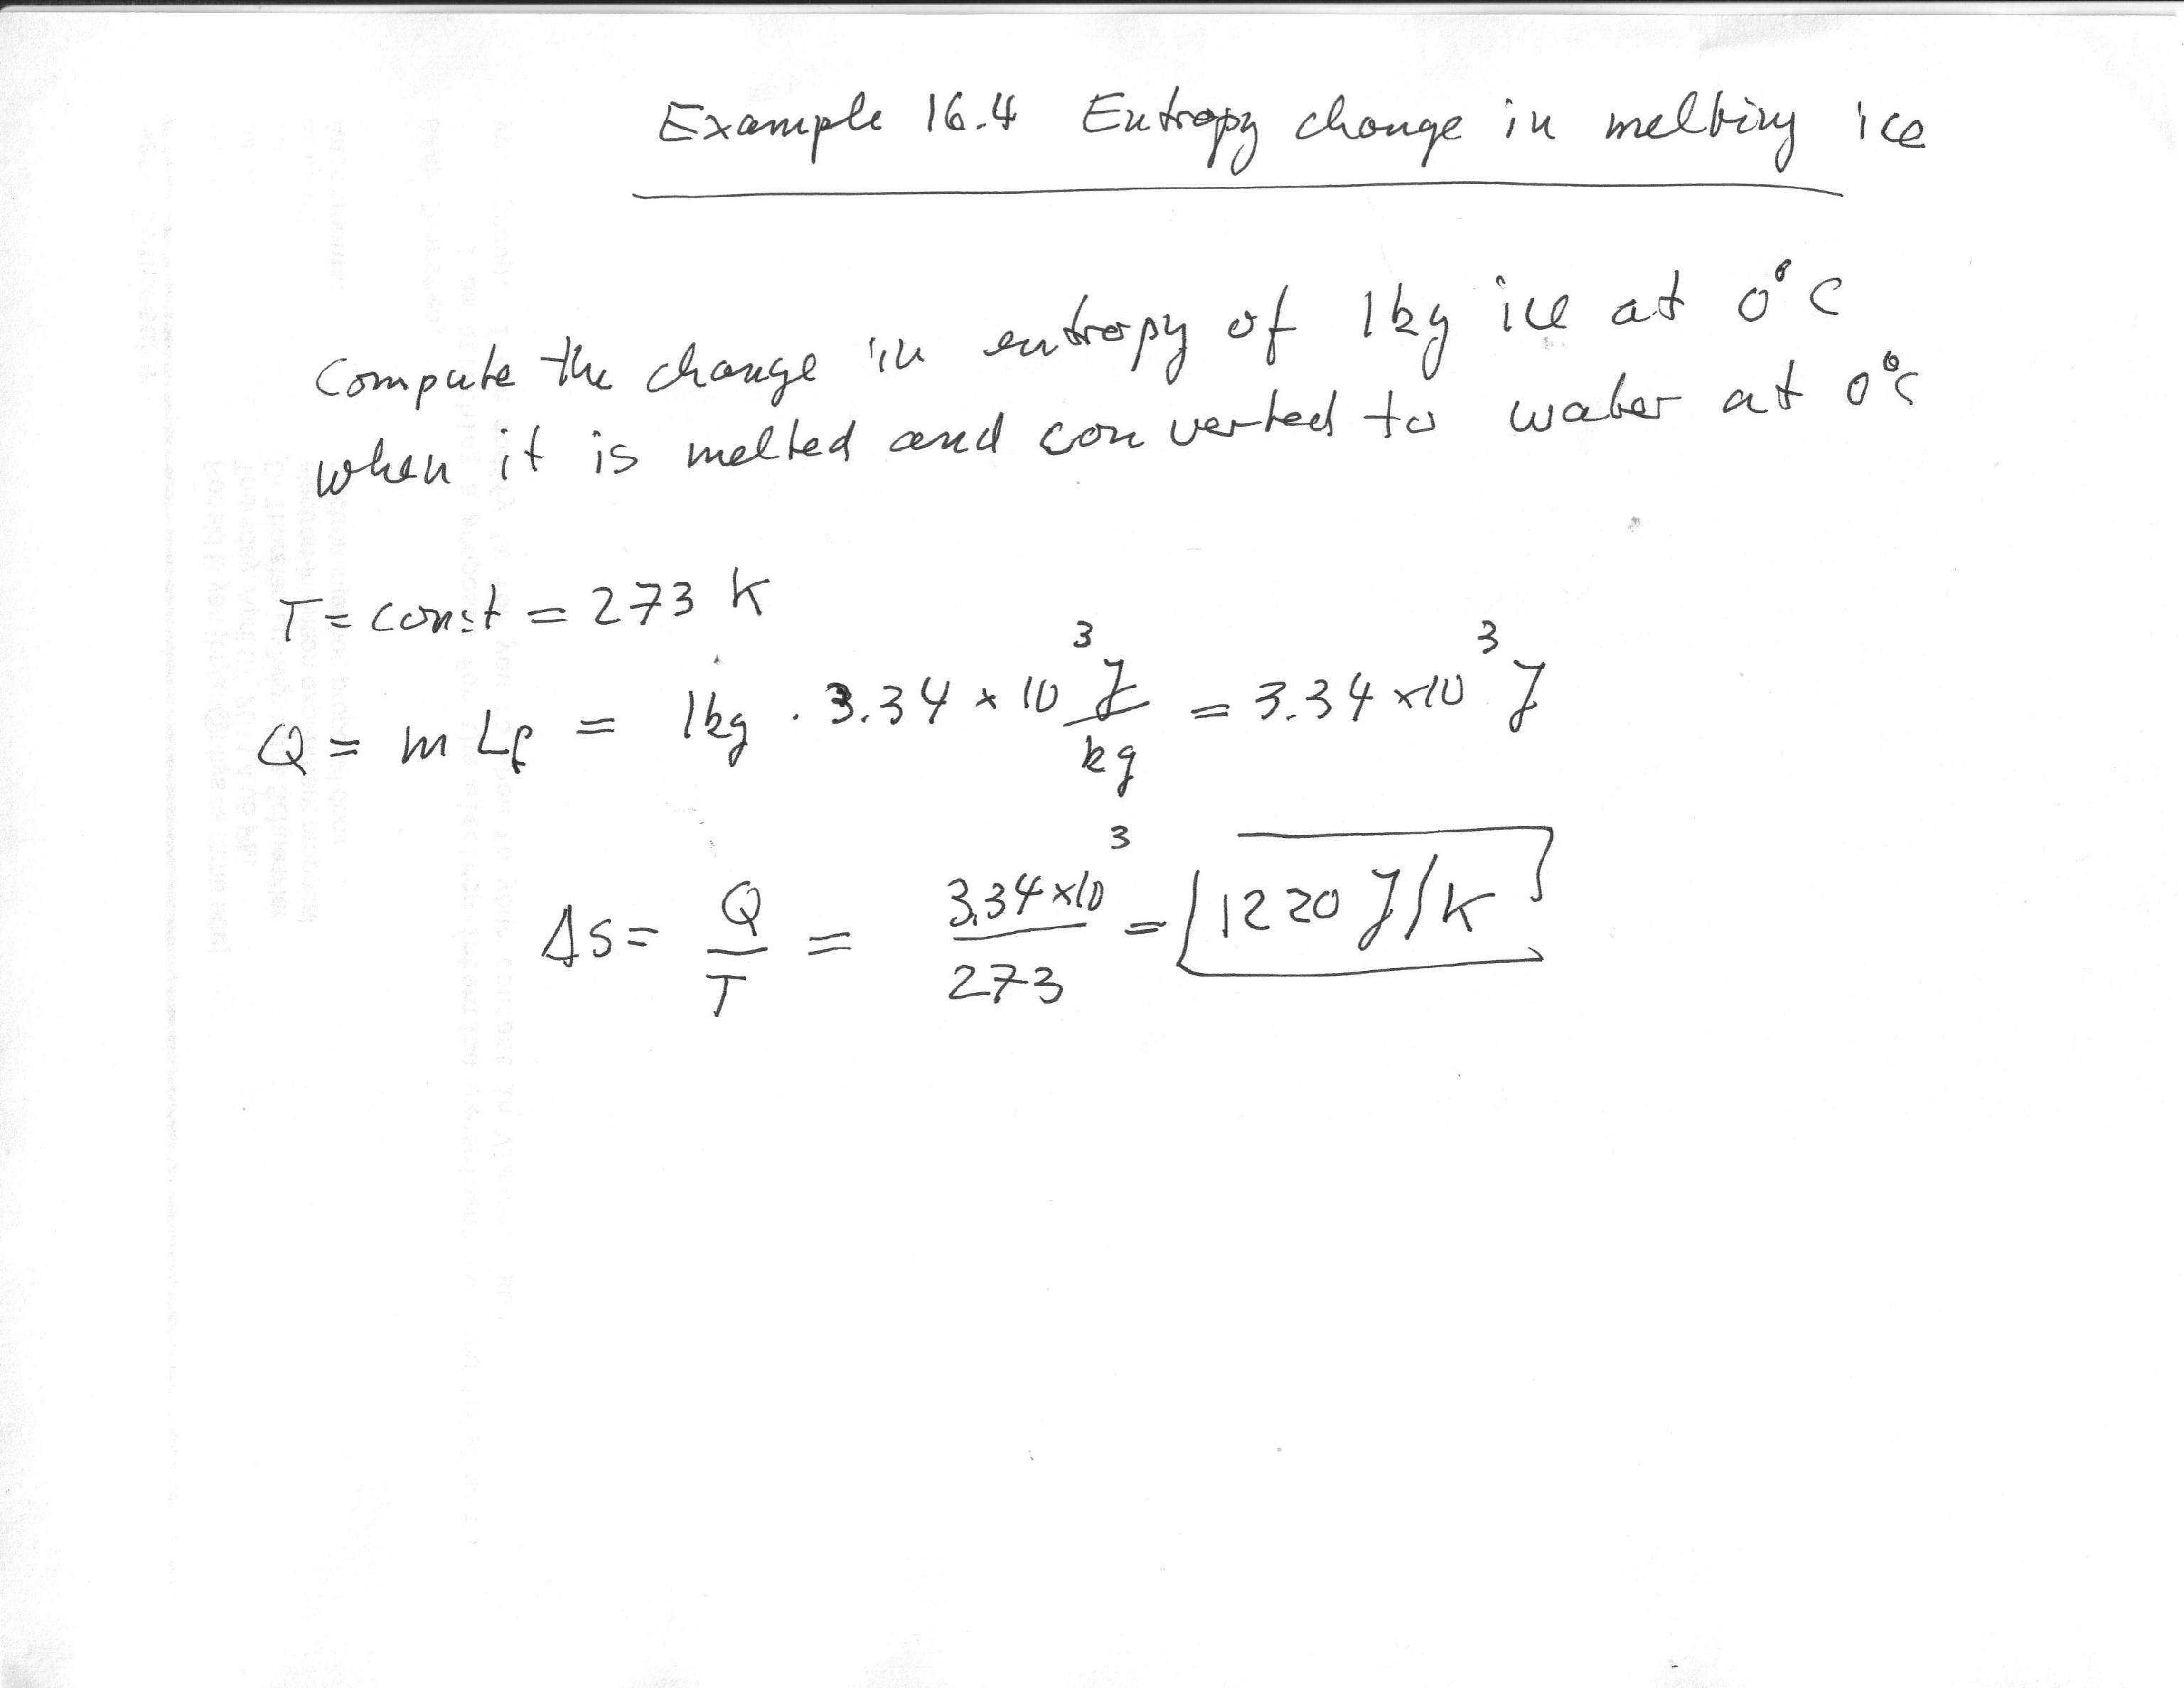 Example 16.4 Entropy change in melting ice
Compute the change in entropy of 1kg ice at 0°C
when it is melted and converted to water at 0°C
T = const = 273 K
Q = m Lf = 1kg · 3.34 × 10³ J/kg = 3.34 × 10³ J
ΔS = Q/T = 3.34 × 10³/273 = 1220 J/K